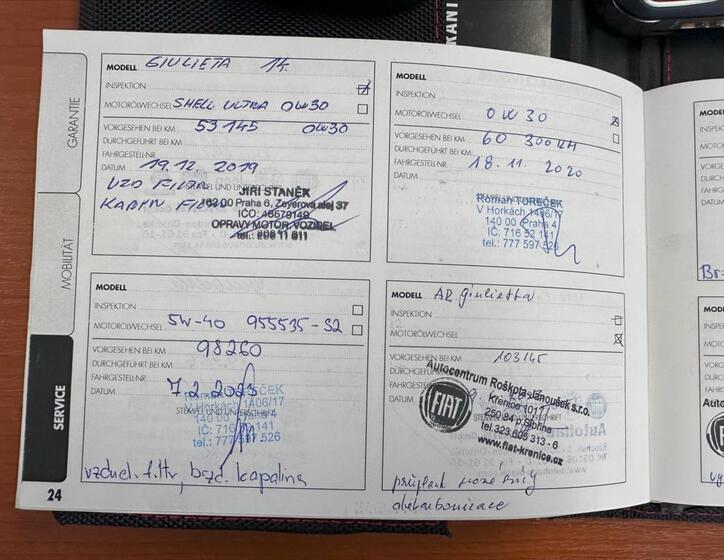 GARANTIE
MOBILITÄT
SERVICE
24
MODELL GIULIETTA 14.
INSPEKTION
MOTORÖLWECHSEL SHELL ULTRA 0W30
VORGESEHEN BEI KM 53 145 0W30
DURCHGEFÜHRT BEI KM
FAHRGESTELL-NR.
DATUM 19.12. 2019
JIŘÍ STANĚK
162 00 Praha 6, Zeyerova alej 37
IČO: 46579149
OPRAVY MOTOR. VOZIDEL
MODELL
INSPEKTION
MOTORÖLWECHSEL 0W30
VORGESEHEN BEI KM 60 300
DURCHGEFÜHRT BEI KM
FAHRGESTELL-NR.
DATUM 18.11. 2020
Roman TUREČEK
V Horkách 1406/17
140 00 Praha 4
IČ: 716 52 141
tel.: 777 597 526
MODELL
INSPEKTION
MOTORÖLWECHSEL 5W-40 955535-S2
VORGESEHEN BEI KM 98260
DURCHGEFÜHRT BEI KM
FAHRGESTELL-NR.
DATUM 7.2.2023
TUREČEK
Horkách 1406/17
140 00
141
tel.: 777 597 526
brzd. kapalina
MODELL AR Giulietta
INSPEKTION
MOTORÖLWECHSEL
VORGESEHEN BEI KM 103145
DURCHGEFÜHRT
FAHRGESTELL
DATUM
Autocentrum Roškota-Janoušek s.r.o.
Křenice 101
250 84 p. Sibřina
tel. 323 605 313-6
www.fiat-krenice.cz
FIAT
dekarbonizace